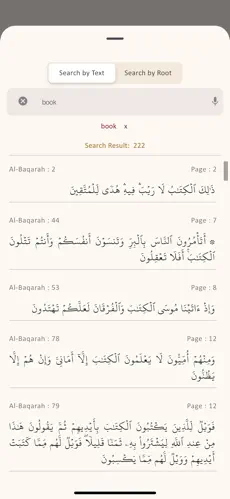 Search by Text Search by Root
book
book x
Search Result: 222
Al-Baqarah : 2 Page : 2
ذَٰلِكَ ٱلْكِتَـٰبُ لَا رَيْبَ ۛ فِيهِ ۛ هُدًى لِّلْمُتَّقِينَ
Al-Baqarah : 44 Page : 7
۞ أَتَأْمُرُونَ ٱلنَّاسَ بِٱلْبِرِّ وَتَنسَوْنَ أَنفُسَكُمْ وَأَنتُمْ تَتْلُونَ
ٱلْكِتَـٰبَ ۚ أَفَلَا تَعْقِلُونَ
Al-Baqarah : 53 Page : 8
وَإِذْ ءَاتَيْنَا مُوسَى ٱلْكِتَـٰبَ وَٱلْفُرْقَانَ لَعَلَّكُمْ تَهْتَدُونَ
Al-Baqarah : 78 Page : 12
وَمِنْهُمْ أُمِّيُّونَ لَا يَعْلَمُونَ ٱلْكِتَـٰبَ إِلَّآ أَمَانِىَّ وَإِنْ هُمْ إِلَّا
يَظُنُّونَ
Al-Baqarah : 79 Page : 12
فَوَيْلٌ لِّلَّذِينَ يَكْتُبُونَ ٱلْكِتَـٰبَ بِأَيْدِيهِمْ ثُمَّ يَقُولُونَ هَـٰذَا
مِنْ عِندِ ٱللَّهِ لِيَشْتَرُوا۟ بِهِۦ ثَمَنًا قَلِيلًا ۖ فَوَيْلٌ لَّهُم مِّمَّا كَتَبَتْ
أَيْدِيهِمْ وَوَيْلٌ لَّهُم مِّمَّا يَكْسِبُونَ